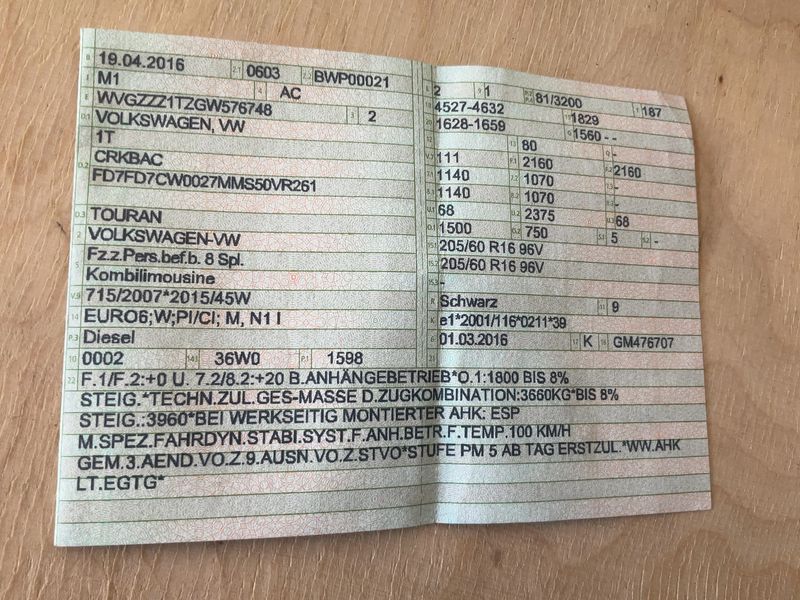 B 19.04.2016 2.1 0603 2.2 BWP00021
J M1 4 AC
E WVGZZZ1TZGW576748 3 2
D.1 VOLKSWAGEN, VW
1T
D.2 CRKBAC
FD7FD7CW0027MMS50VR261
D.3 TOURAN
2 VOLKSWAGEN-VW
5 Fz.z.Pers.bef.b. 8 Spl.
Kombilimousine
V.9 715/2007*2015/45W
14 EURO6;W;PI/CI; M, N1 I
P.3 Diesel
10 0002 14.1 36W0 P.1 1598
L 2 9 1 P.2/P.4 81/3200 T 187
18 4527-4632 19 1829
20 1628-1659 G 1560 - -
12 - 13 80 Q -
V.7 111 F.1 2160 F.2 2160
7.1 1140 7.2 1070 7.3 -
8.1 1140 8.2 1070 8.3 -
U.1 68 U.2 2375 U.3 68
O.1 1500 O.2 750 S.1 5 S.2 -
15.1 205/60 R16 96V
15.2 205/60 R16 96V
15.3 -
R Schwarz 11 9
K e1*2001/116*0211*39
6 01.03.2016 17 K 16 GM476707
21
22 F.1/F.2:+0 U. 7.2/8.2:+20 B.ANHÄNGEBETRIEB*O.1:1800 BIS 8%
STEIG.*TECHN.ZUL.GES-MASSE D.ZUGKOMBINATION:3660KG*BIS 8%
STEIG.:3960*BEI WERKSEITIG MONTIERTER AHK: ESP
M.SPEZ.FAHRDYN.STABI.SYST.F.ANH.BETR.F.TEMP.100 KM/H
GEM.3.AEND.VO.Z.9.AUSN.VO.Z.STVO*STUFE PM 5 AB TAG ERSTZUL.*WW.AHK
LT.EGTG*